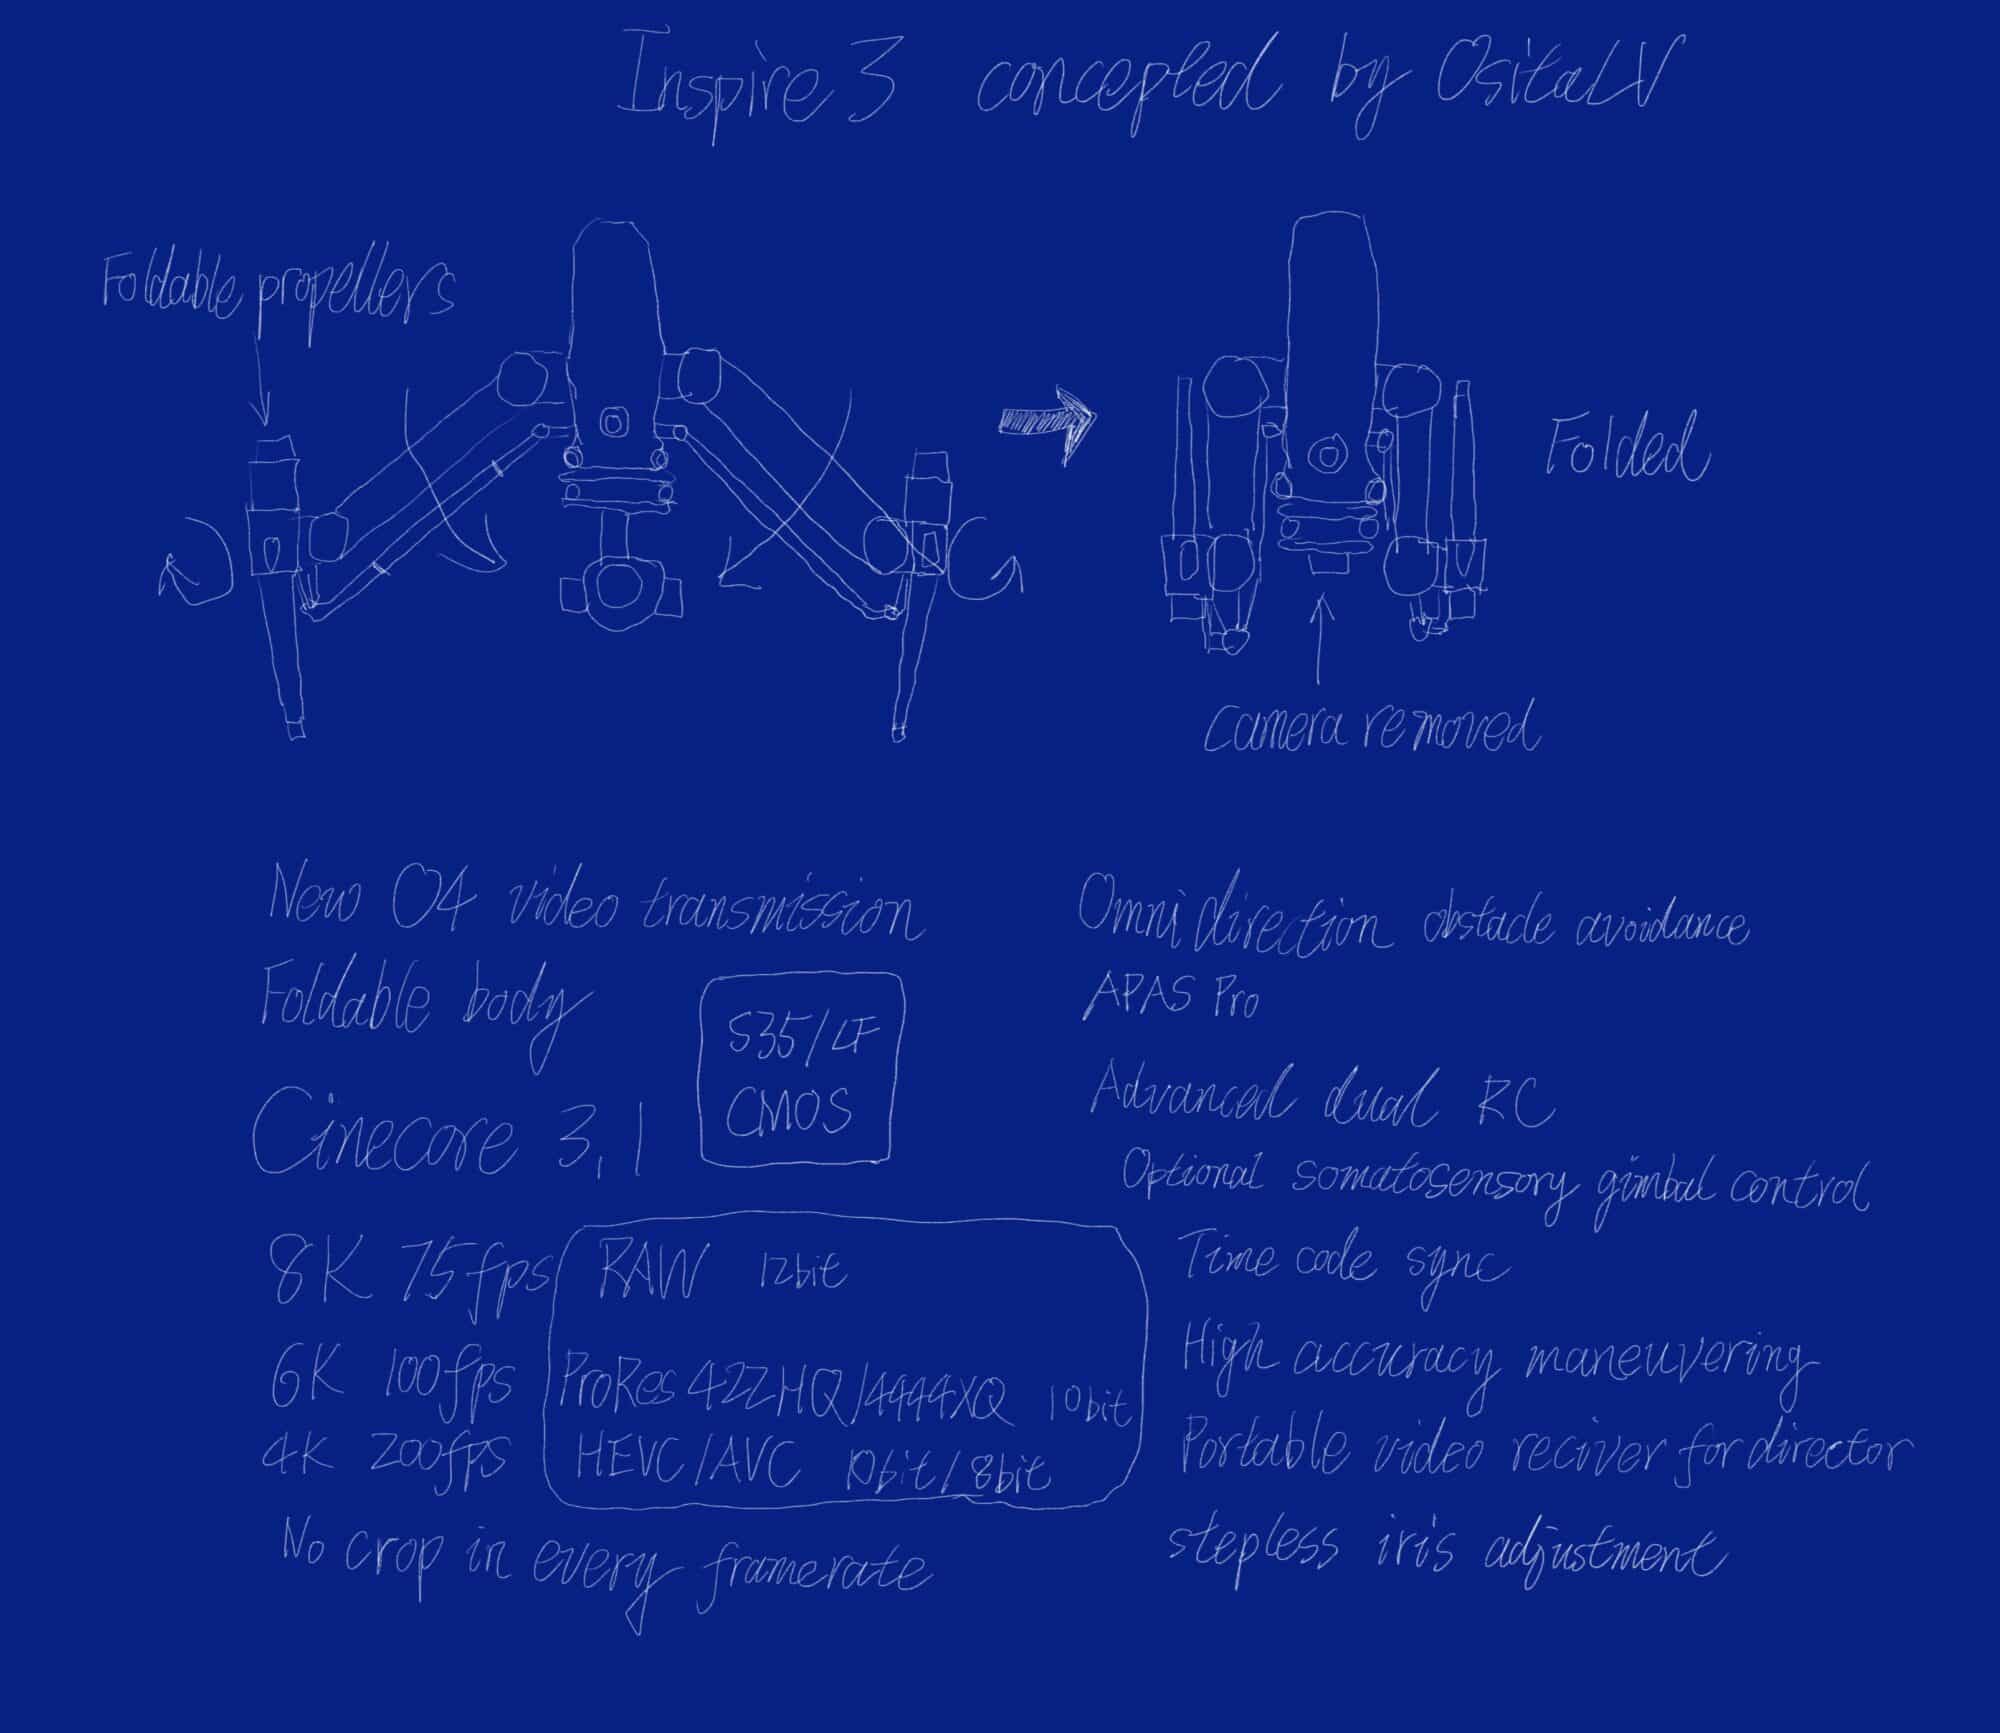 Inspire 3 concepted by OsitaLV
Foldable propellers
Folded
Camera removed
New O4 video transmission
Foldable body
S35/LF
CMOS
Cinecore 3.1
8K 75fps RAW 12bit
6K 100fps ProRes 422HQ/4444XQ 10bit
4K 200fps HEVC/AVC 10bit/8bit
No crop in every framerate
Omni direction obstacle avoidance
APAS Pro
Advanced dual RC
Optional somatosensory gimbal control
Time code sync
High accuracy maneuvering
Portable video reciver for director
stepless iris adjustment